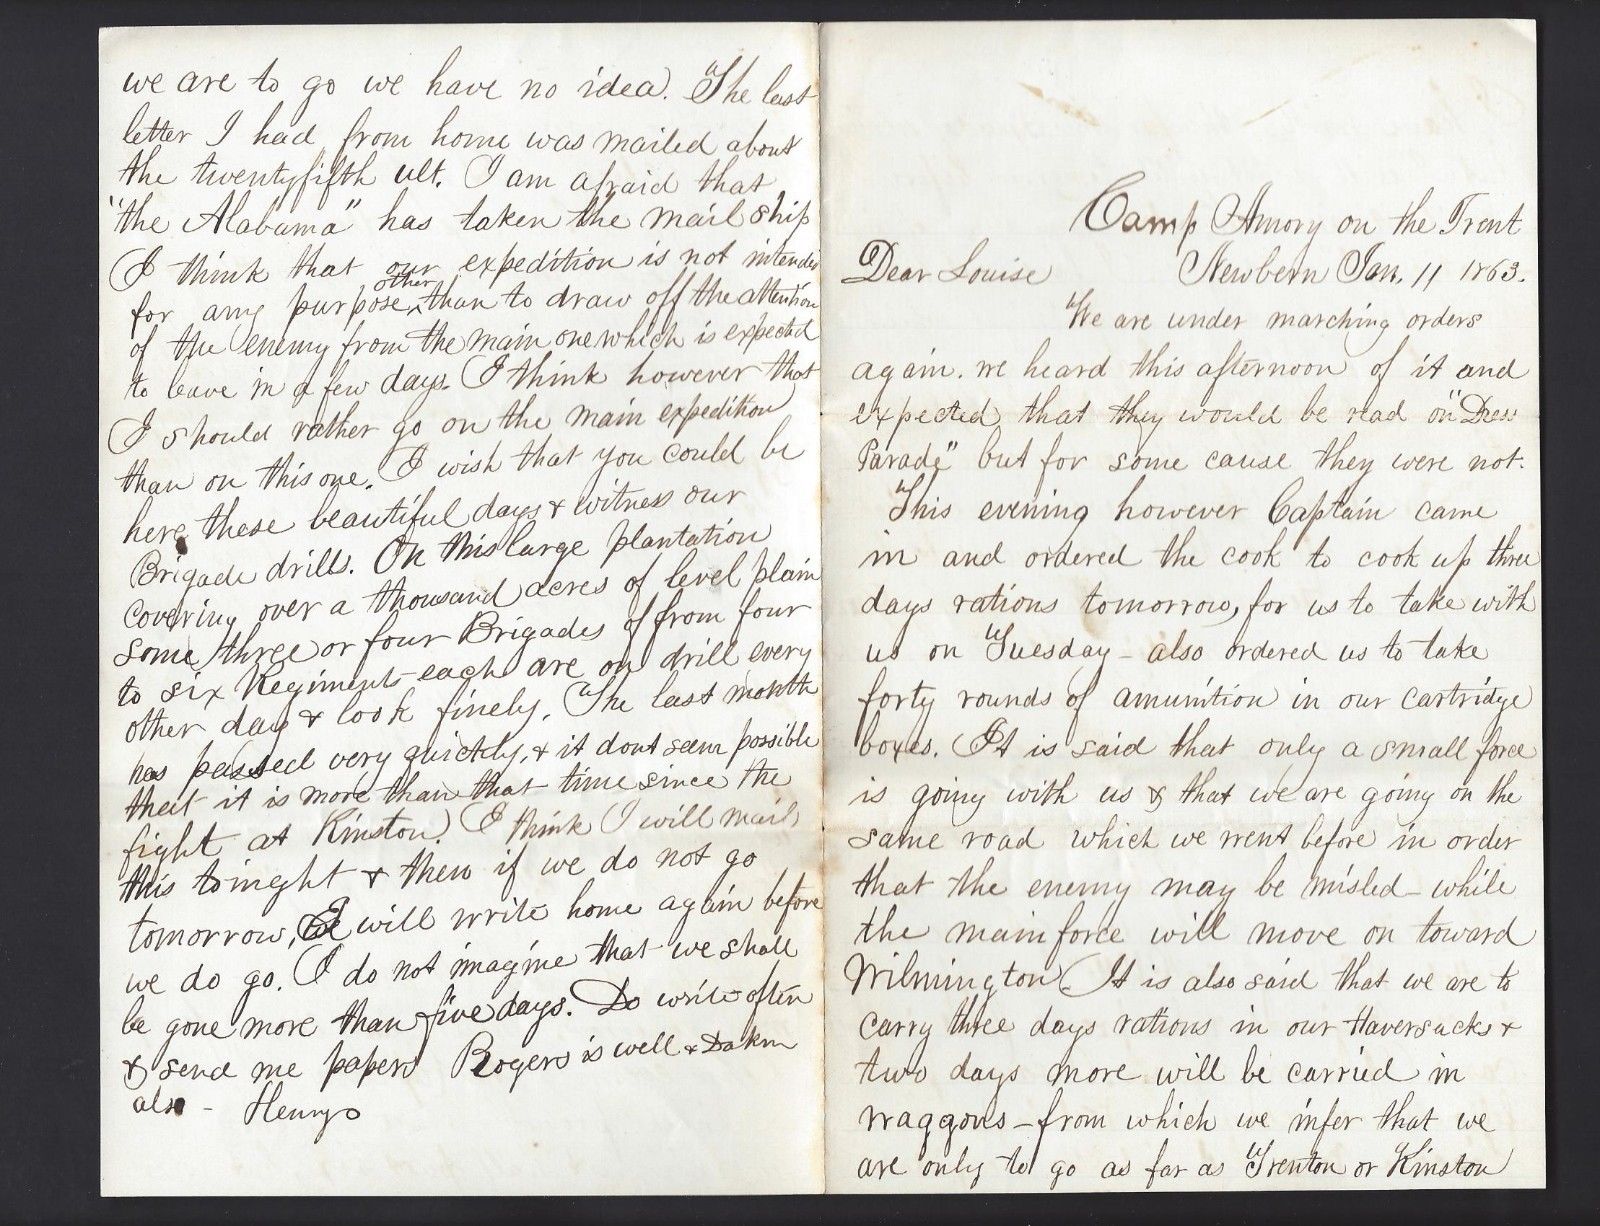 Camp Amory on the Trent
Dear Louise Newbern Jan. 11 1863.
We are under marching orders
again. we heard this afternoon of it and
expected that they would be read on "Dress
Parade" but for some cause they were not.
This evening however Captain came
in and ordered the cook to cook up three
days rations tomorrow, for us to take with
us on Tuesday - also ordered us to take
forty rounds of amunition in our cartridge
boxes. It is said that only a small force
is going with us & that we are going on the
same road which we went before in order
that the enemy may be misled - while
the main force will move on toward
Wilmington. It is also said that we are to
carry three days rations in our Haversacks &
two days more will be carried in
waggons - from which we infer that we
are only to go as far as Trenton or Kinston
we are to go we have no idea. The last
letter I had from home was mailed about
the twentyfifth ult. I am afraid that
"the Alabama" has taken the mail ship
I think that our expedition is not intended
for any purpose, other than to draw off the attention
of the enemy from the main one which is expected
to leave in a few days. I think however that
I should rather go on the main expedition
than on this one. I wish that you could be
here these beautiful days & witness our
Brigade drills. On this large plantation
covering over a thousand acres of level plain
some three or four Brigades of from four
to six Regiments each are on drill every
other day & look finely. The last month
has passed very quickly, & it dont seem possible
that it is more than that time since the
fight at Kinston. I think I will mail
this toinght & then if we do not go
tomorrow, I will write home again before
we do go. I do not imagine that we shall
be gone more than five days. Do write often
& send me papers Rogers is well & Dakin
also - Henry